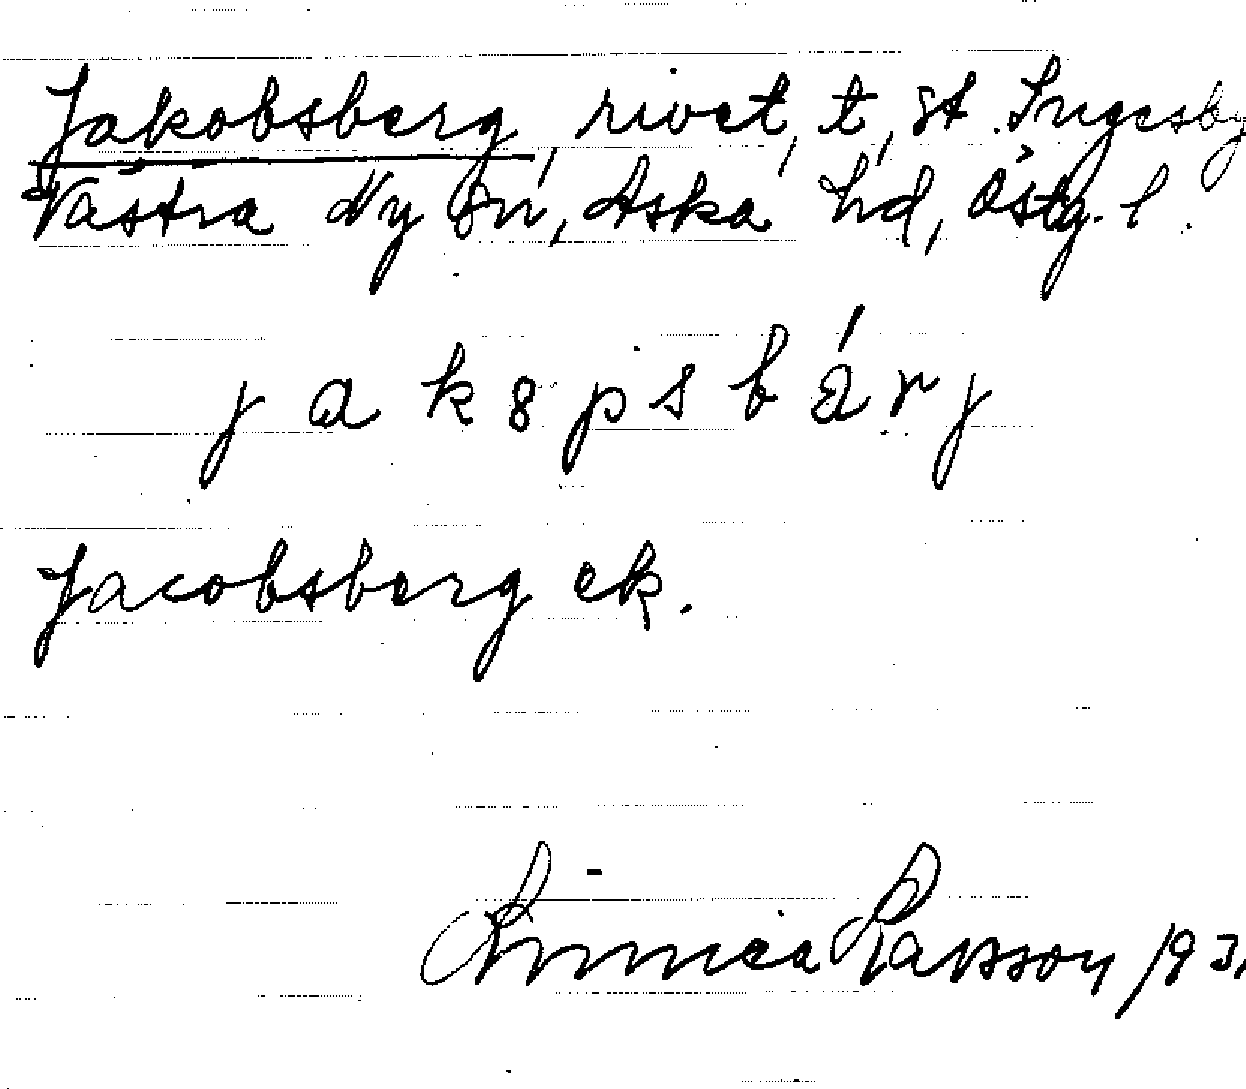 Jakobsberg, rivet, t, st. Ingesby
Västra Ny sn, Aska hd, Östg. l.
j a k 8 p s b á r j
Jacobsberg ek.
Linnéa Larsson 193